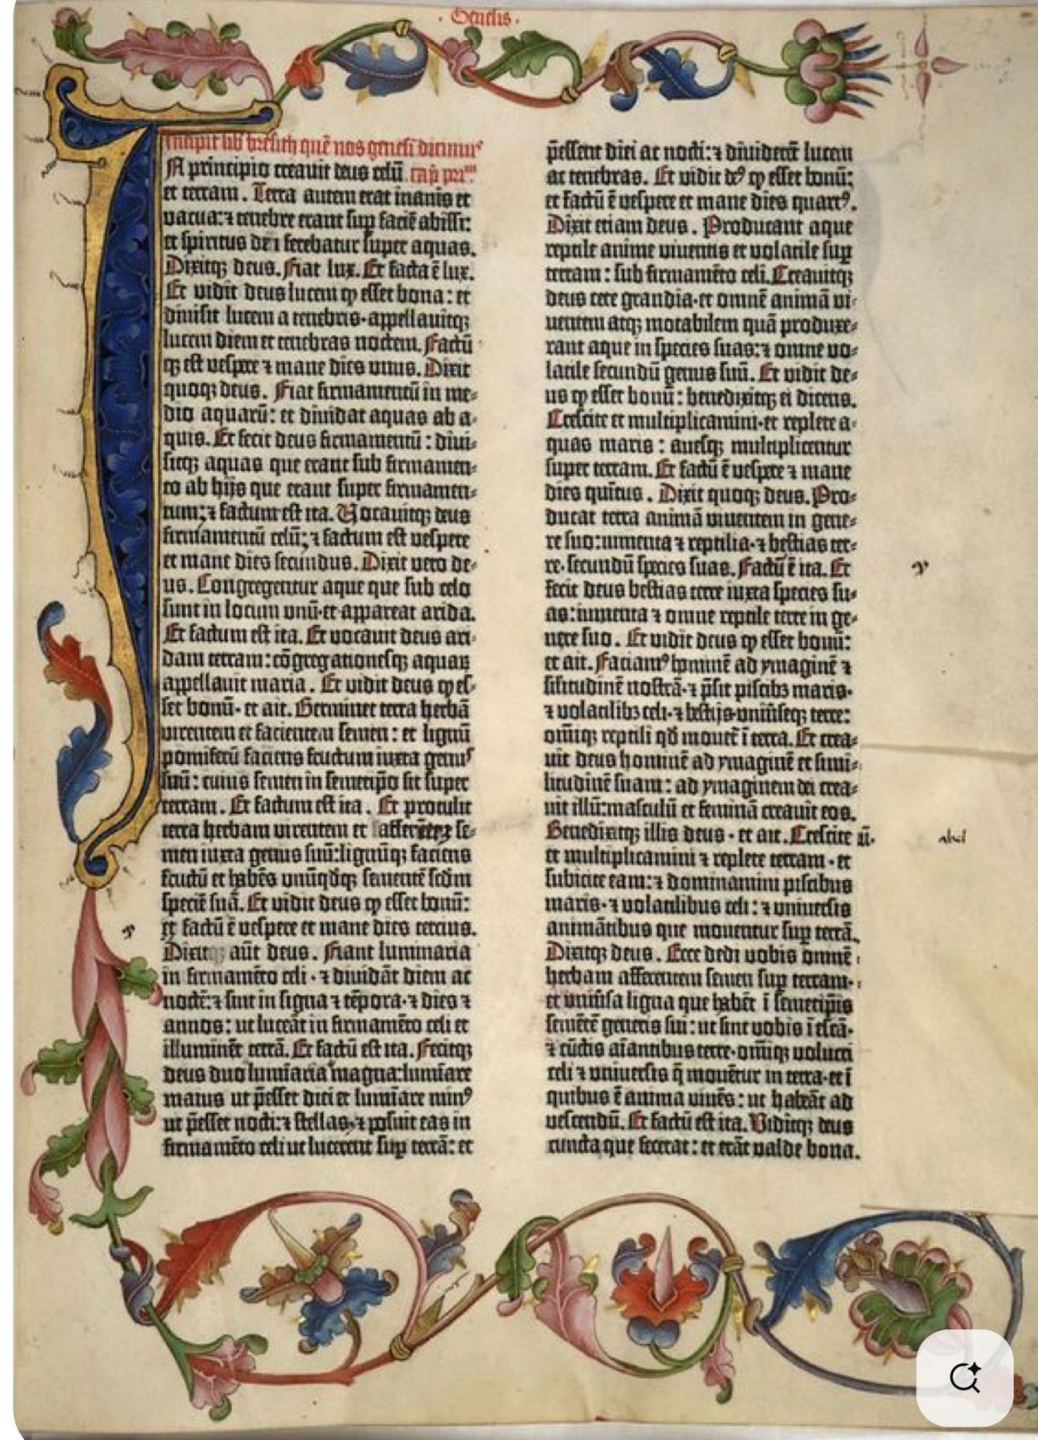 Genesis.
Incipit lib bresith quē nos genesi dicimus
IN principio creauit deus celū cap̄ primū
et terram. Terra autem erat inanis et
vacua: ⁊ tenebre erant sup facie abissi:
et spiritus dei ferebatur super aquas.
Dixitqꝫ deus. Fiat lux. Et facta ē lux.
Et vidit deus lucem ꝙ esset bona: et
diuisit lucem a tenebris·appellauitqꝫ
lucem diem et tenebras noctem. Factū
qꝫ est vespere ⁊ mane dies vnus. Dixit
quoqꝫ deus. Fiat firmamentū in me⸗
dio aquarū: et diuidat aquas ab a⸗
quis. Et fecit deus firmamentū: diui⸗
sitqꝫ aquas que erant sub firmamen⸗
to ab hijs que erant super firmamen⸗
tum: ⁊ factum est ita. Vocauitqꝫ deus
firmamentū celū: ⁊ factum est vespere
et mane dies secundus. Dixit vero de⸗
us. Congregentur aque que sub celo
sunt in locum vnū·et appareat arida.
Et factum est ita. Et vocauit deus ari⸗
dam terram: cōgregationesqꝫ aquaꝝ
appellauit maria. Et vidit deus ꝙ es⸗
set bonū· et ait. Germinet terra herbā
virentem et facientem semen: et lignū
pomiferū faciens fructum iuxta genꝰ
suū: cuius semen in semetipō sit super
terram. Et factum est ita. Et protulit
terra herbam virentem et afferētez se⸗
men iuxta genus suū: lignūqꝫ faciens
fructū et habēs vnūqdqꝫ sementē scdm
speciē suā. Et vidit deus ꝙ esset bonū:
et factū ē vespere et mane dies tercius.
Dixitqꝫ aūt deus. Fiant luminaria
in firmamēto celi· ⁊ diuidāt diem ac
noctē: ⁊ sint in signa ⁊ tēpora· ⁊ dies ⁊
annos: ut luceāt in firmamēto celi et
illuminēt terrā. Et factū est ita. Fecitqꝫ
deus duo lumīaria magna: lumīare
maius ut p̄esset diei et lumīare minꝰ
ut p̄esset nocti: ⁊ stellas· ⁊ posuit eas in
firmamēto celi ut lucerent sup terrā: et
p̄essent diei ac nocti: ⁊ diuiderēt lucem
ac tenebras. Et vidit deꝰ ꝙ esset bonū:
et factū ē vespere et mane dies quartꝰ.
Dixit etiam deus. Producant aque
reptile anime viuentis et volatile sup
terram: sub firmamēto celi. Creauitqꝫ
deus cete grandia· et omnē animā vi⸗
uentem atqꝫ motabilem quā produxe⸗
rant aque in species suas: ⁊ omne vo⸗
latile secundū genus suū. Et vidit de⸗
us ꝙ esset bonū: benedixitqꝫ ei dicens.
Crescite et multiplicamini· et replete a⸗
quas maris: auesqꝫ multiplicentur
super terram. Et factū ē vespere ⁊ mane
dies quītus. Dixit quoqꝫ deus. Pro⸗
ducat terra animā viuentem in gene⸗
re suo: iumenta ⁊ reptilia· ⁊ bestias ter⸗
re· secundū species suas. Factū ē ita. Et
fecit deus bestias terre iuxta species su⸗
as: iumenta ⁊ omne reptile terre in ge⸗
nere suo. Et vidit deus ꝙ esset bonū:
et ait. Faciamꝰ hominē ad ymaginē ⁊
silitudinē nostrā· ⁊ p̄sit piscibꝫ maris·
⁊ volatilibꝫ celi· ⁊ bestijs·vniūseqꝫ terre:
omīqꝫ reptili qd mouet ī terra. Et crea⸗
uit deus hominē ad ymaginē et simi⸗
litudinē suam: ad ymaginem dei crea⸗
uit illū: masculū et feminā creauit eos.
Benedixitqꝫ illis deus· et ait. Crescite
et multiplicamini ⁊ replete terram· et
subicite eam: ⁊ dominamini piscibus
maris· ⁊ volatilibus celi: ⁊ vniuersis
animātibus que mouentur sup terrā.
Dixitqꝫ deus. Ecce dedi vobis omnē
herbam afferentem semen sup terram·
et vniūsa ligna que habēt ī semetipis
semētē generis sui: ut sint vobis ī escā·
⁊ cūctis aīantibus terre· omīqꝫ volucri
celi ⁊ vniuersis q̄ mouētur in terra· et ī
quibus ē anima viuēs: ut habeāt ad
vescendū. Et factū est ita. Viditqꝫ deus
cuncta que fecerat: et erāt valde bona.